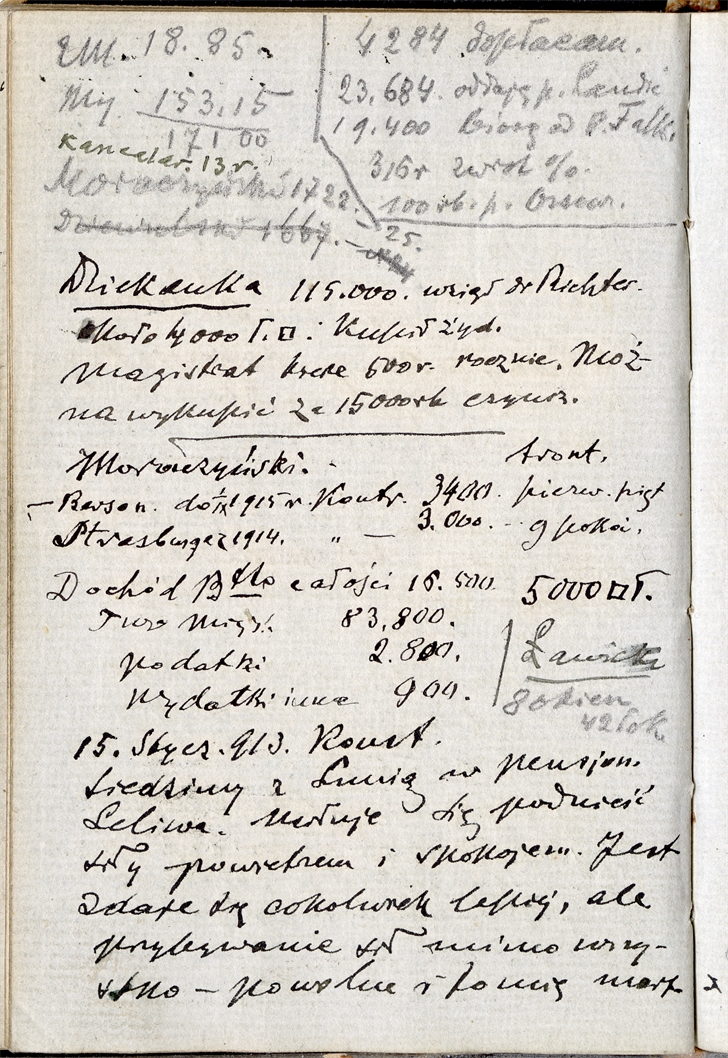 18.85.
My 153.15
171 00
Kancelar. 13 r.
Moraczyński 1722.
4284 dopłacam.
23.684. oddaję p.
19.400 biorę od P. Falk.
316 r zwrot %.
100 rb. p.
25.
Dziekanka 115.000. wziął dr Richter.
około 4000 ł. □ : Kupił żyd.
Magistrat bierze 600 r. rocznie. Moż-
na wykupić za 15000 rb czynsz.
Moraczyński. front.
do 1915 r. Kontr. 3400. pierw. pięt
Strasburger 1914. " — 3.000. - 9 pokoi.
Dochód Btto całości 16.500. 5000 □ ł.
Tow. Miejsk. 83,800.
podatki 2.800.
Wydatki inne 900.
Ławicka
8 okien
42 łok.
15. Stycz. 913. Konst.
Siedzimy z Lunią w pensjon.
Leliwa. Usiłuje się podnieść
siły powietrzem i spokojem. Jest
zdaje się cokolwiek lepiej, ale
przybywanie sił mimo wszy-
stko – powolne i Lunię mart